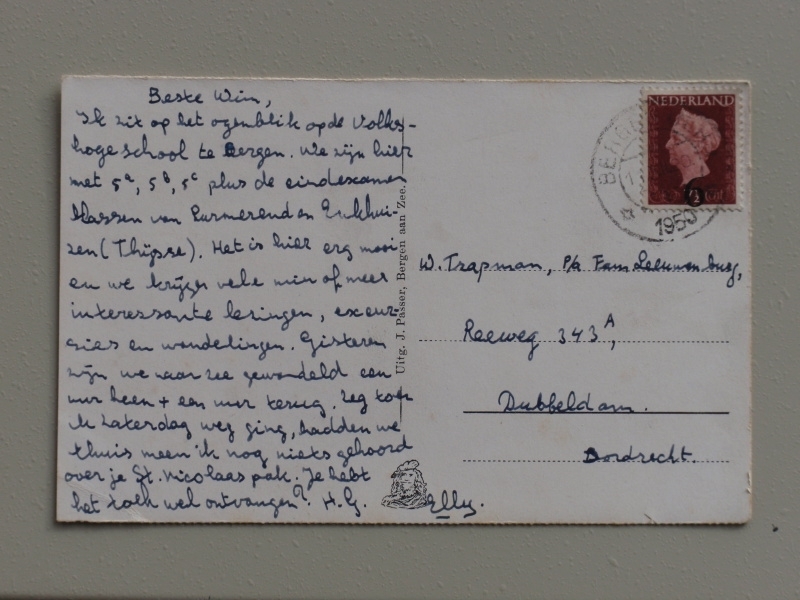 Beste Wim,
Ik zit op het ogenblik op de Volks-
hogeschool te Bergen. We zijn hier
met 5a, 5b, 5c plus de eindexamen
klassen van Purmerend en Enkhui-
zen (Thijsse). Het is hier erg mooi
en we krijgen vele min of meer
interessante lezingen, excur-
sies en wandelingen. Gisteren
zijn we naar zee gewandeld een
uur heen + een uur terug. Zeg toen
ik Zaterdag weg ging, hadden we
thuis meen ik nog niets gehoord
over je St. Nicolaas pak. Je hebt
het toch wel ontvangen? H.G.
Elly.
Uitg. J. Passer, Bergen aan Zee.
NEDERLAND
6
1950
W. Trapman, p/a Fam Leeuwenburg,
Reeweg 343A,
Dubbeldam.
Dordrecht.